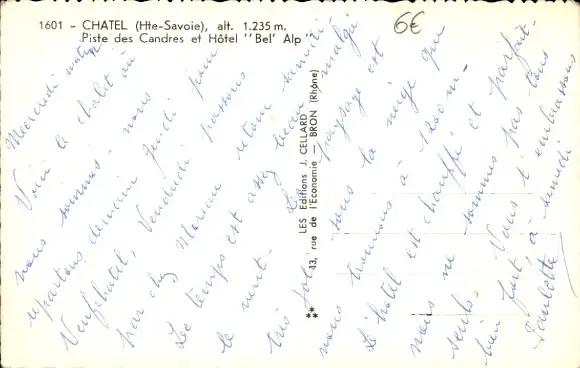 1601 - CHATEL (Hte-Savoie), alt. 1.235 m.
Piste des Candres et Hôtel "Bel' Alp"
6€
LES Editions J. CELLARD
** 13, rue de l'Economie — BRON (Rhône)
Mercredi matin
Voici le chalet où
nous sommes. nous
repartons demain Jeudi pour
Neufchatel, Vendredi passons
par chez Maman retour samedi
Le temps est assez beau malgré
le vent. Le paysage est
très joli sous la neige que
nous trouvons à 1200 m.
L'hôtel est chauffé et parfait
nous ne sommes pas tous
seuls. Nous t'embrassons
bien fort, à samedi
Paulette